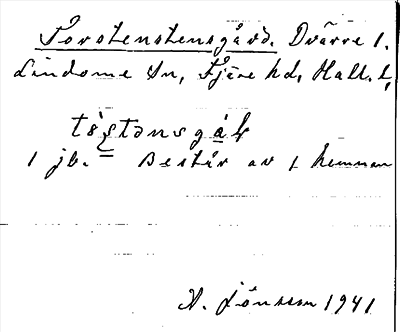 Torstenstensgård. Dvärre 1.
Lindome Sn, Fjäre hd, Hall. l,
tòştənsgáɫ
1 jb. = Består av 1 hemman
A. Jönsson 1941